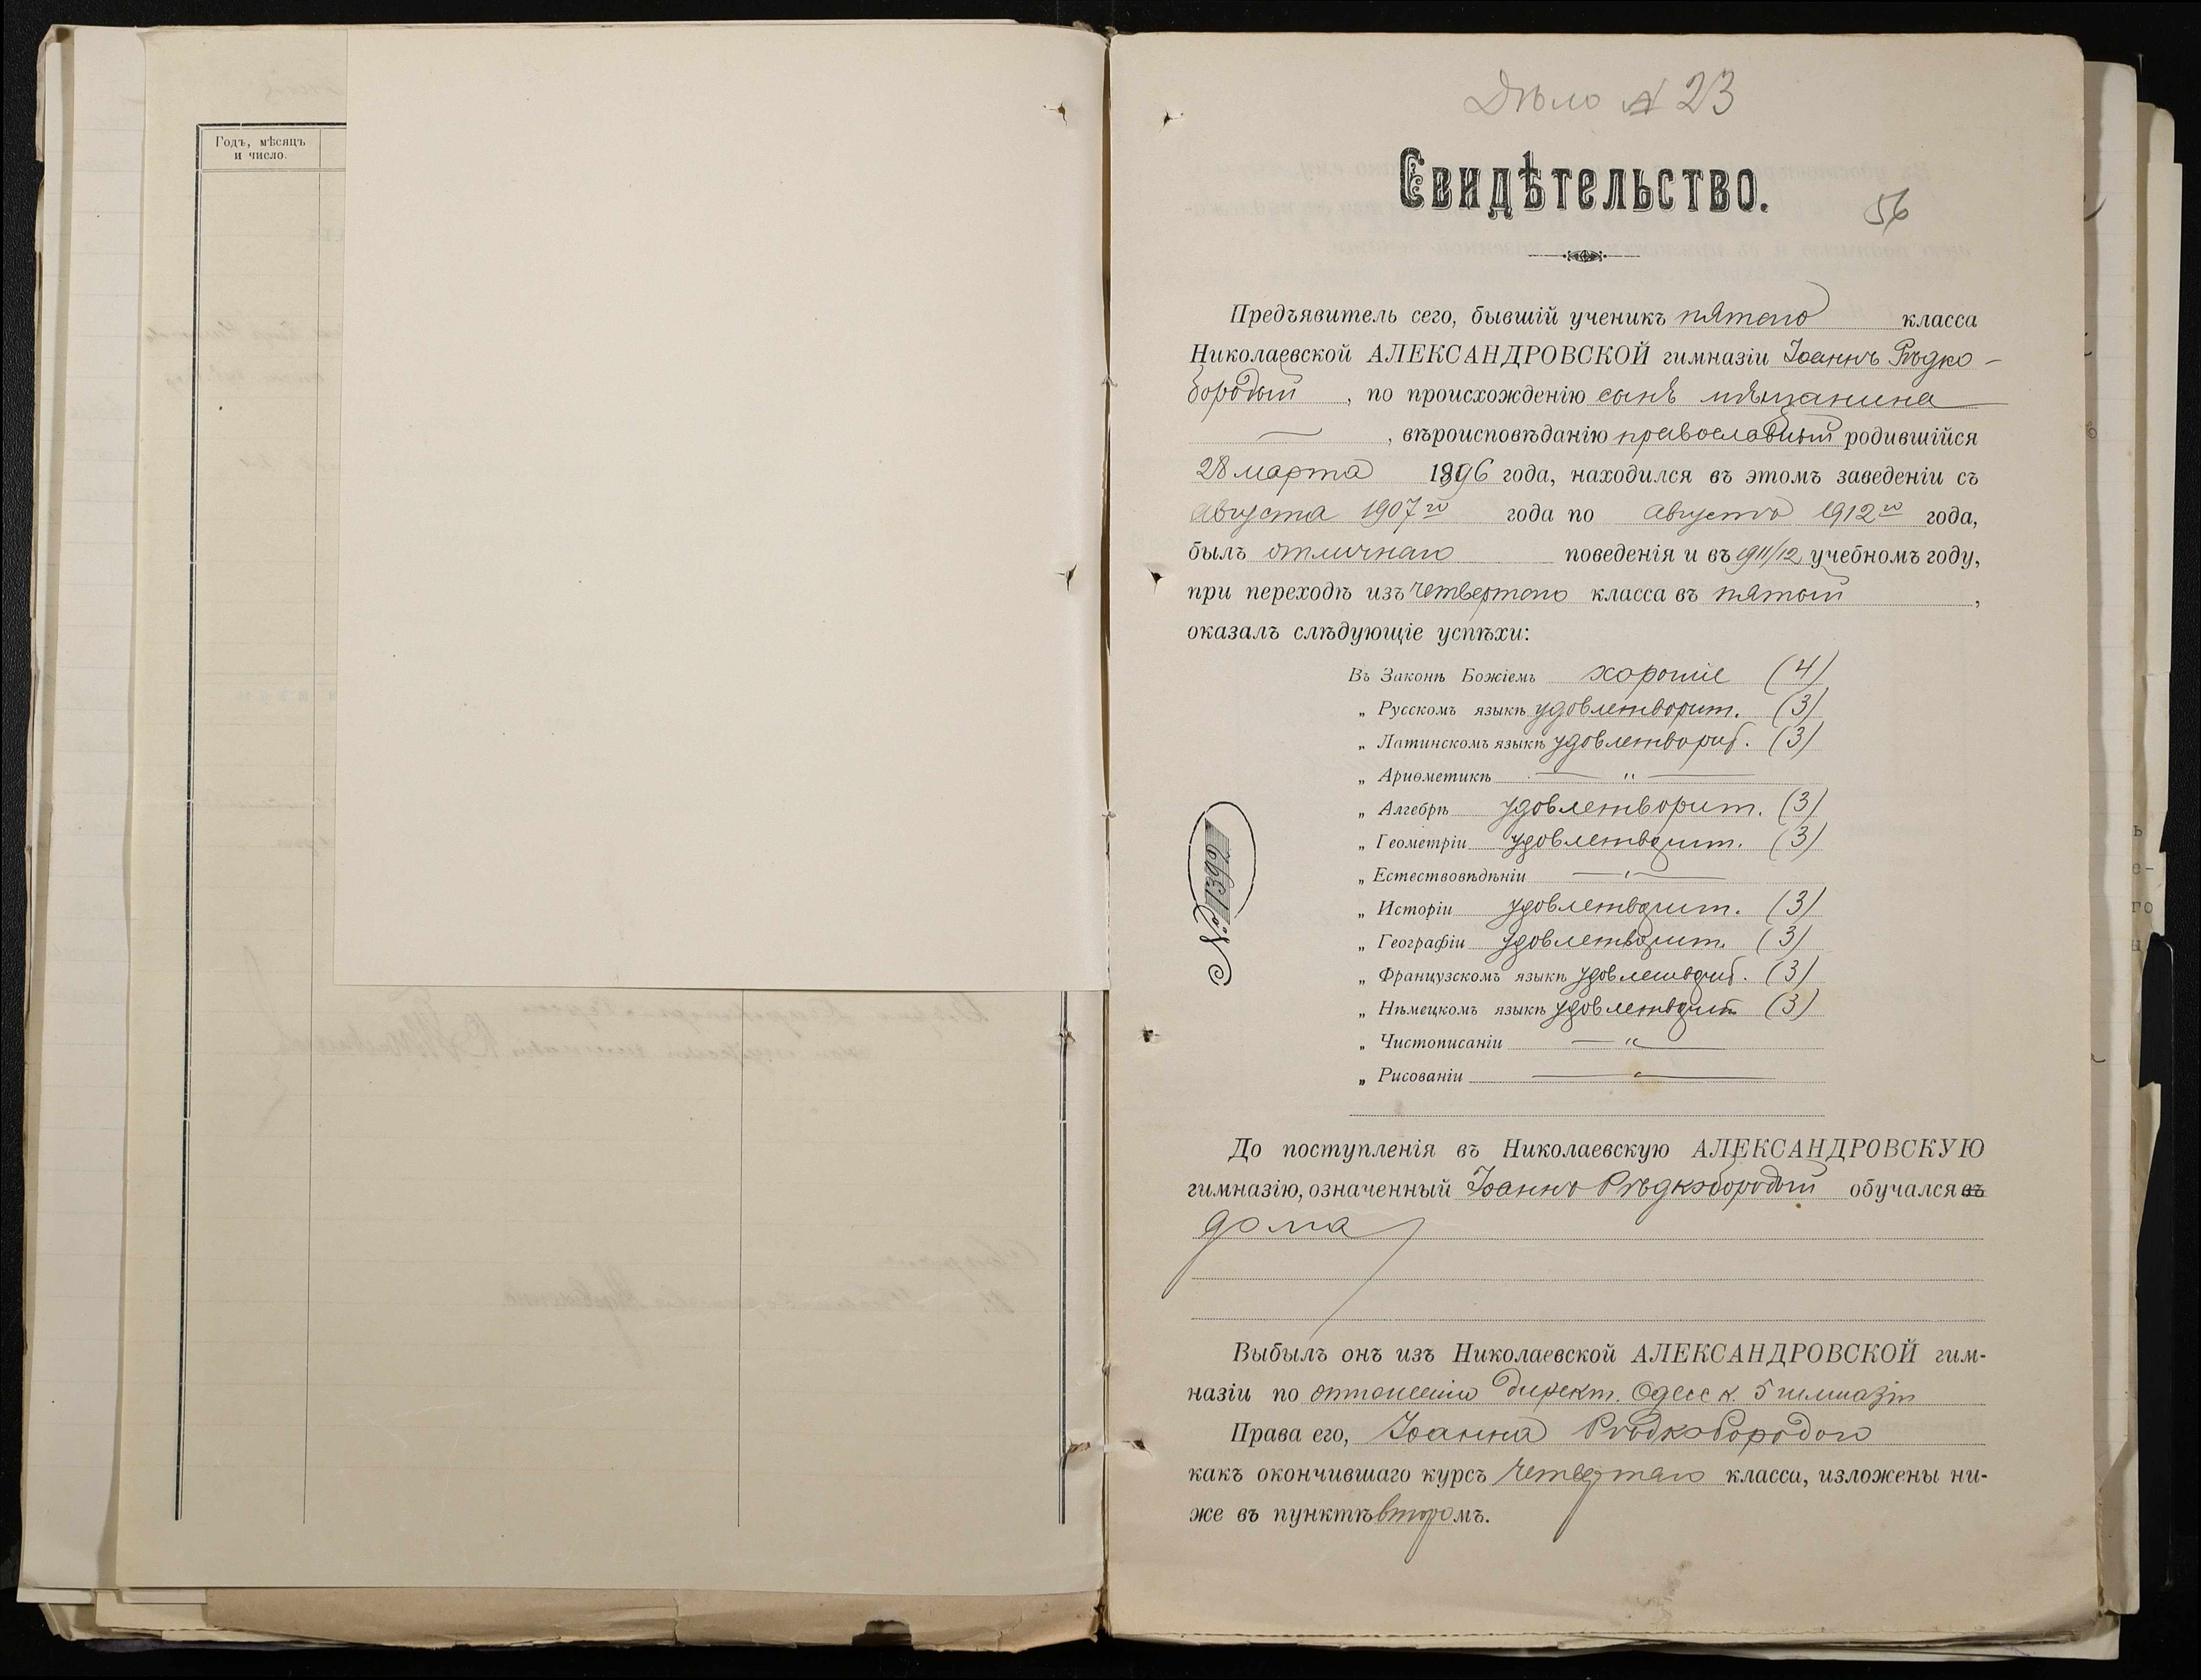 Годъ, мѣсяцъ
и число.
Дѣло № 23
Свидѣтельство.
56
Предъявитель сего, бывшій ученикъ пятаго класса
Николаевской АЛЕКСАНДРОВСКОЙ гимназіи Іоаннъ Рѣдко-
бородый, по происхожденію сынъ мѣщанина
—, вѣроисповѣданію православный родившійся
28 марта 1896 года, находился въ этомъ заведеніи съ
Августа 1907го года по Августъ 1912го года,
былъ отличнаго поведенія и въ 1911/12 учебномъ году,
при переходѣ изъ четвертаго класса въ пятый,
оказалъ слѣдующіе успѣхи:
Въ Законѣ Божіемъ хорошіе (4)
„ Русскомъ языкѣ удовлетворит. (3)
„ Латинскомъ языкѣ удовлетворит. (3)
„ Ариѳметикѣ — " —
„ Алгебрѣ удовлетворит. (3)
„ Геометріи удовлетворит. (3)
„ Естествовѣдѣніи — " —
„ Исторіи удовлетворит. (3)
„ Географіи удовлетворит. (3)
„ Французскомъ языкѣ удовлетворит. (3)
„ Нѣмецкомъ языкѣ удовлетворит (3)
„ Чистописаніи — " —
„ Рисованіи — " —
№ 1392
До поступленія въ Николаевскую АЛЕКСАНДРОВСКУЮ
гимназію, означенный Іоаннъ Рѣдкобородый обучался въ
дома
Выбылъ онъ изъ Николаевской АЛЕКСАНДРОВСКОЙ гим-
назіи по отношенію директ. Одесск. 5 гимназіи
Права его, Іоанна Рѣдкобородаго
какъ окончившаго курсъ четвертаго класса, изложены ни-
же въ пунктѣ второмъ.